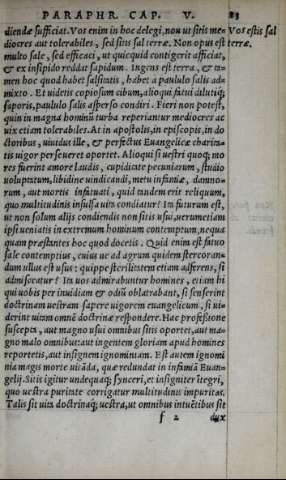 PARAPHR. CAP. V. 23
diendæ sufficiat. Vos enim in hoc delegi, non ut sitis me- Vos estis sal
diocres aut tolerabiles, sed sitis sal terræ. Non opus est terræ.
multo sale, sed efficaci, ut quicquid contigerit afficiat,
& ex insipido reddat sapidum. Ingens est terra, & ta-
men hoc quod habet salsitatis, habet a paululo salis ad-
mixto. Et uidetis copiosum cibum, alioqui fatui dilutiq;
saporis, paululo salis asperso condiri. Fieri non potest,
quin in magna hominũ turba reperiantur mediocres ac
uix etiam tolerabiles. At in apostolis, in episcopis, in do
ctoribus, uiuidus ille, & perfectus Euangelicæ charita-
tis uigor perseueret oportet. Alioqui si uestri quoq; mo
res fuerint amore laudis, cupiditate pecuniarum, studio
uoluptatum, libidine uindicandi, metu infamiæ, damno-
rum, aut mortis infatuati, quid tandem erit reliquum,
quo multitudinis insulsa uita condiatur? Ita futurum est,
ut non solum alijs condiendis non sitis usui, uerumetiam
ipsi ueniatis in extremum hominum contemptum, nequa
quam præstantes hoc quod docetis. Quid enim est fatuo
sale contemptius, cuius ne ad agrum quidem stercoran-
dum ullus est usus: quippe sterilitatem etiam adferens, si
admisceatur? Ita uos admirabuntur homines, etiam hi
qui uobis per inuidiam & odiũ oblatrabant, si senserint
doctrinam uestram sapere uigorem euangelicum, si ui-
derint uitam omnẽ doctrinæ respondere. Hac professione
suscepta, aut magno usui omnibus sitis oportet, aut ma-
gno malo omnibus: aut ingentem gloriam apud homines
reportetis, aut insignem ignominiam. Est autem ignomi
nia magis morte uitãda, quæ redundat in infamiã Euan-
gelij. Sitis igitur undequaq; synceri, et insigniter ĩtegri,
quo uestra puritate corrigatur multitudinis impuritas.
Talis sit uita doctrinaq; uestra, ut omnibus intuẽtibus sit
f 2 dux